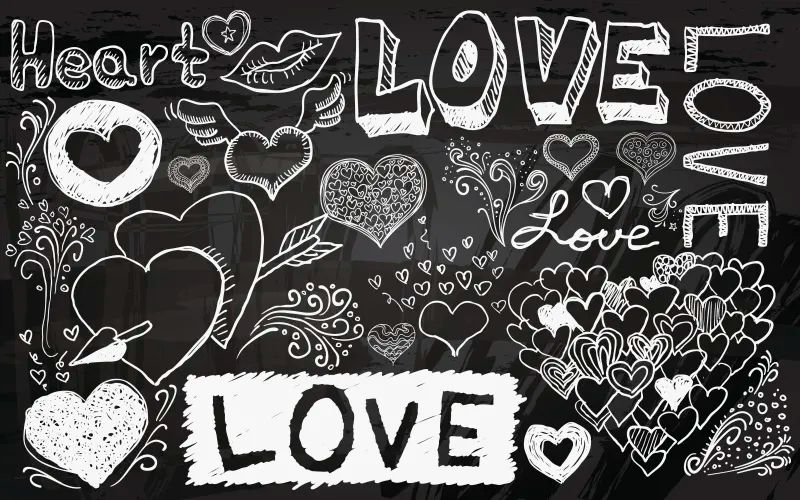 Heart
LOVE
LOVE
Love
LOVE